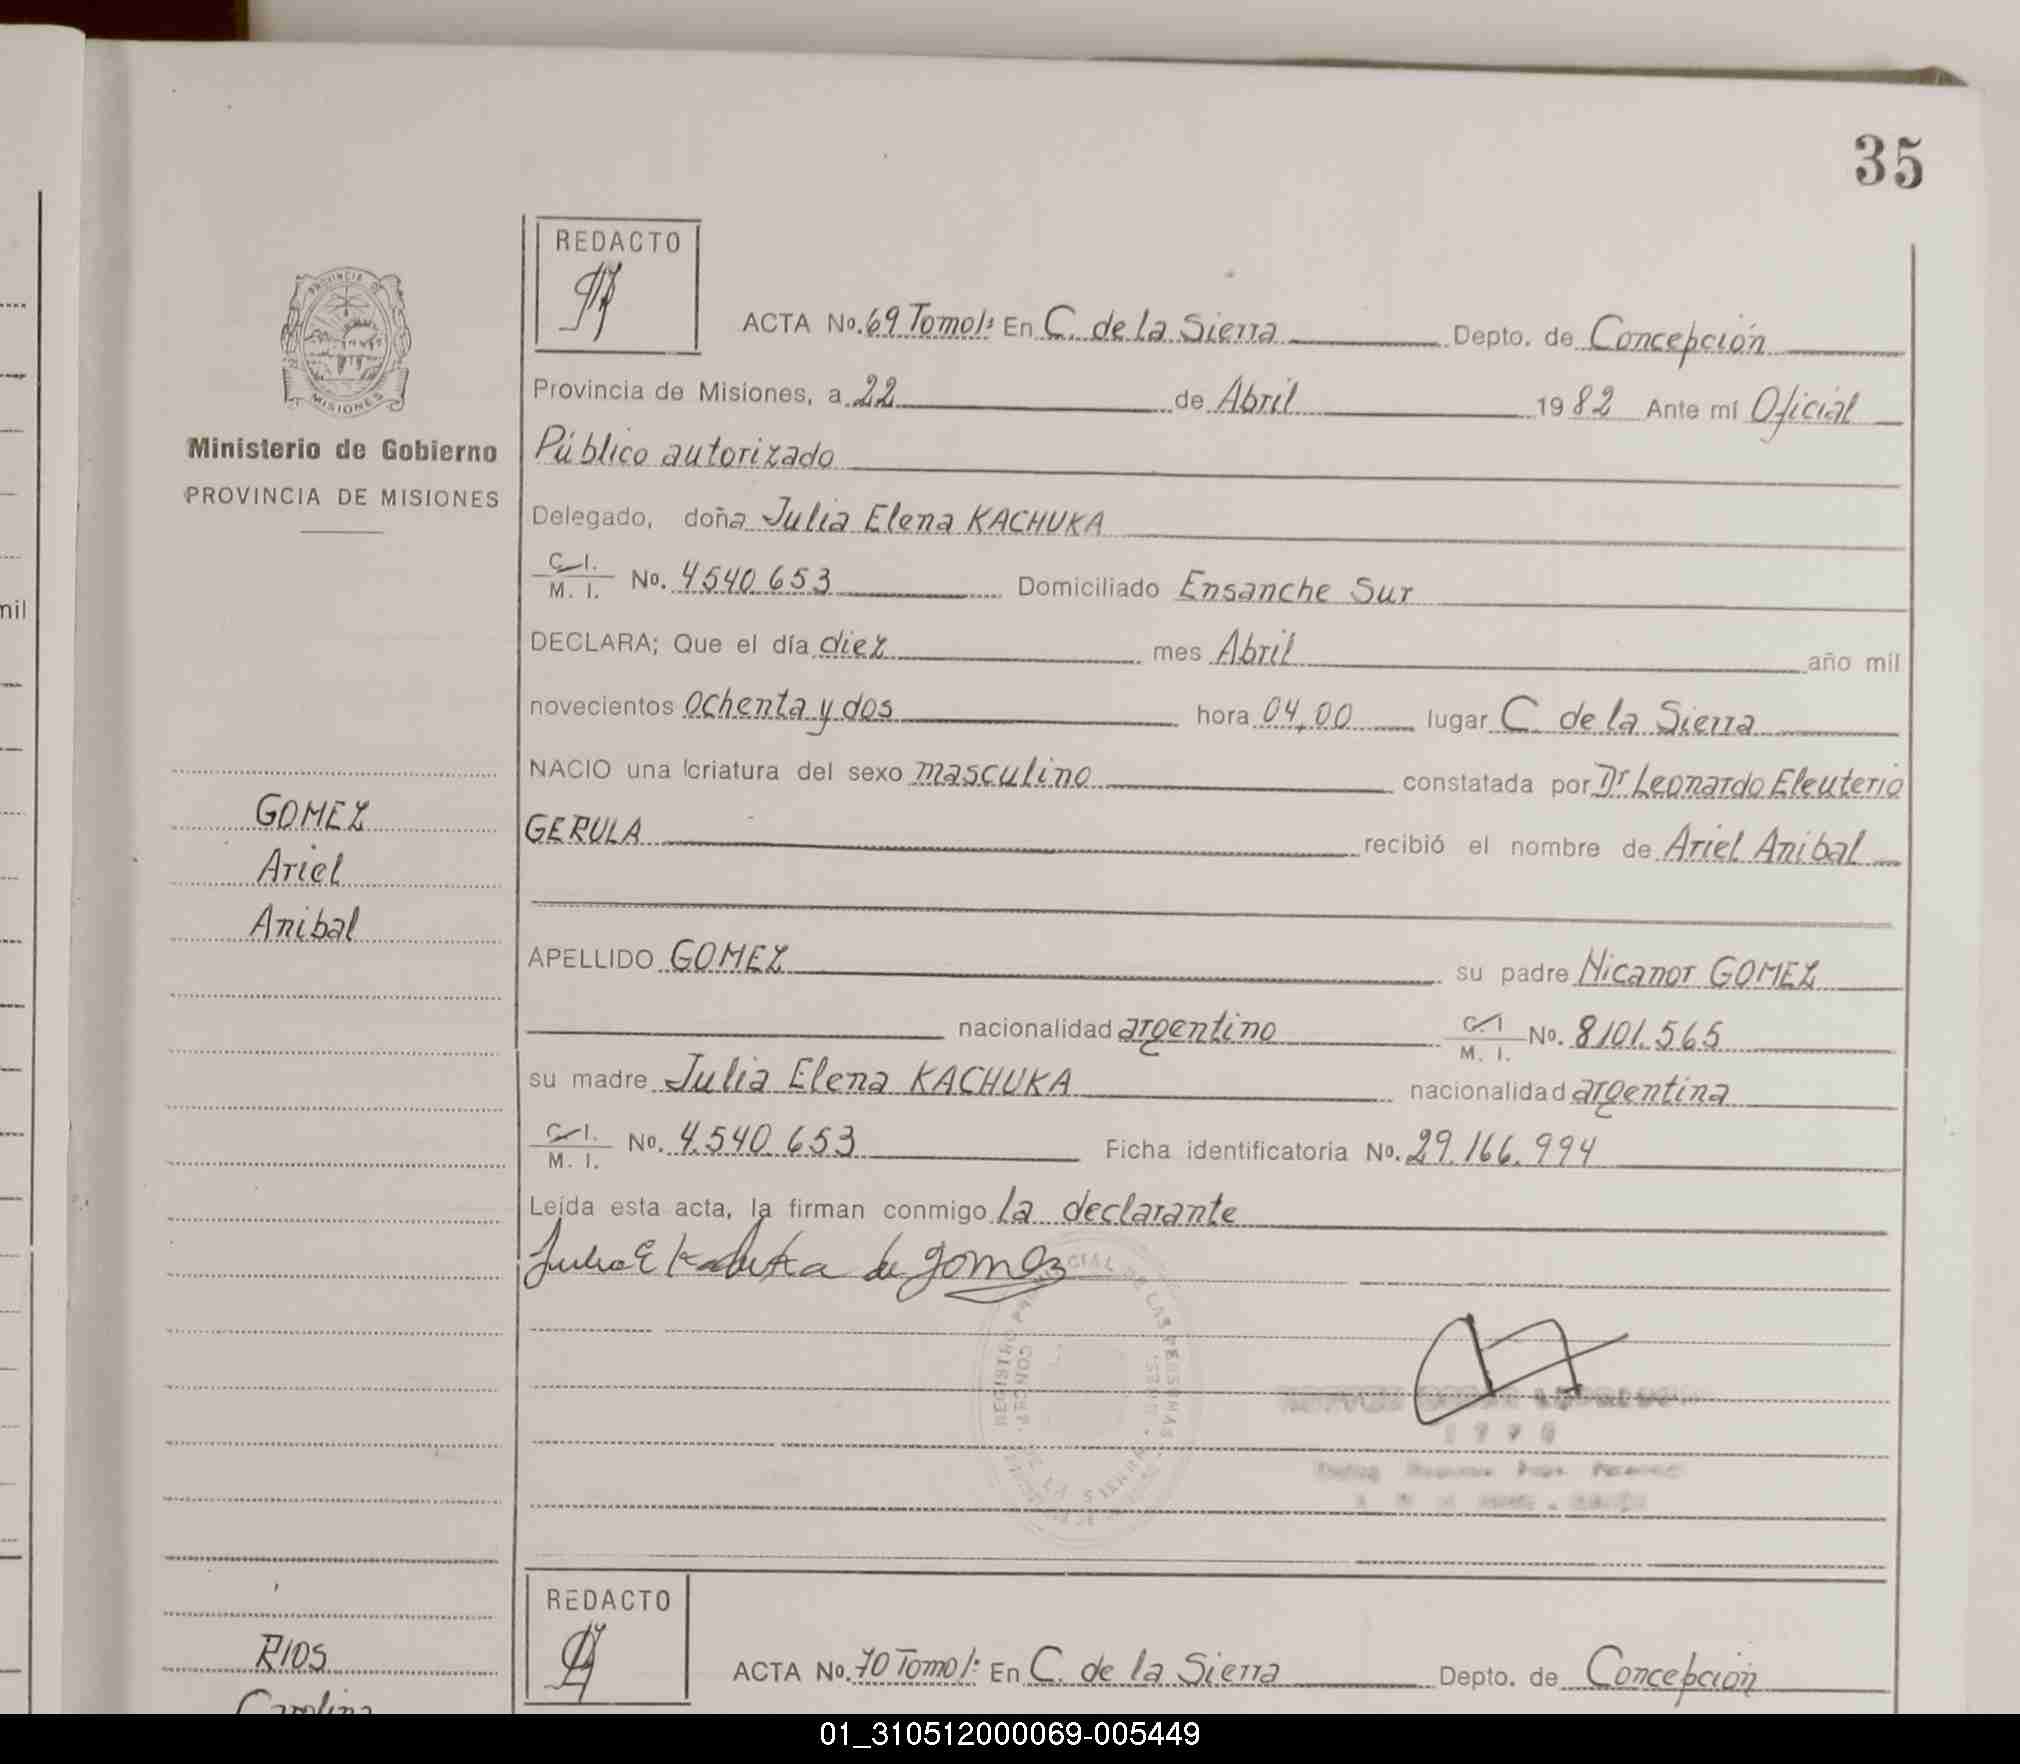 35
REDACTO
PROVINCIA DE
MISIONES
Ministerio de Gobierno
PROVINCIA DE MISIONES
ACTA No. 69 Tomo 1: En C. de la Sierra Depto. de Concepción
Provincia de Misiones, a 22 de Abril 1982 Ante mí Oficial
Público autorizado
Delegado, doña Julia Elena KACHUKA
C. I. M. I. No. 4540.653 Domiciliado Ensanche Sur
DECLARA; Que el día diez mes Abril año mil
novecientos ochenta y dos hora 04,00 lugar C. de la Sierra
NACIO una criatura del sexo masculino constatada por Dr Leonardo Eleuterio
GERULA recibió el nombre de Ariel Anibal
GOMEZ
Ariel
Anibal
APELLIDO GOMEZ su padre Nicanor GOMEZ
nacionalidad argentino C. I M. I. No. 8101.565
su madre Julia Elena KACHUKA nacionalidad argentina
C. I. M. I. No. 4.540.653 Ficha identificatoria No. 29.166.994
Leída esta acta, la firman conmigo la declarante
Julia E Kachuka de Gomez
REGISTRO PROVINCIAL DE LAS PERSONAS
CONCEP. DE LA SIERRA
REDACTO
ACTA No. 70 Tomo 1: En C. de la Sierra Depto. de Concepción
RIOS
Carolina
mil
01_310512000069-005449